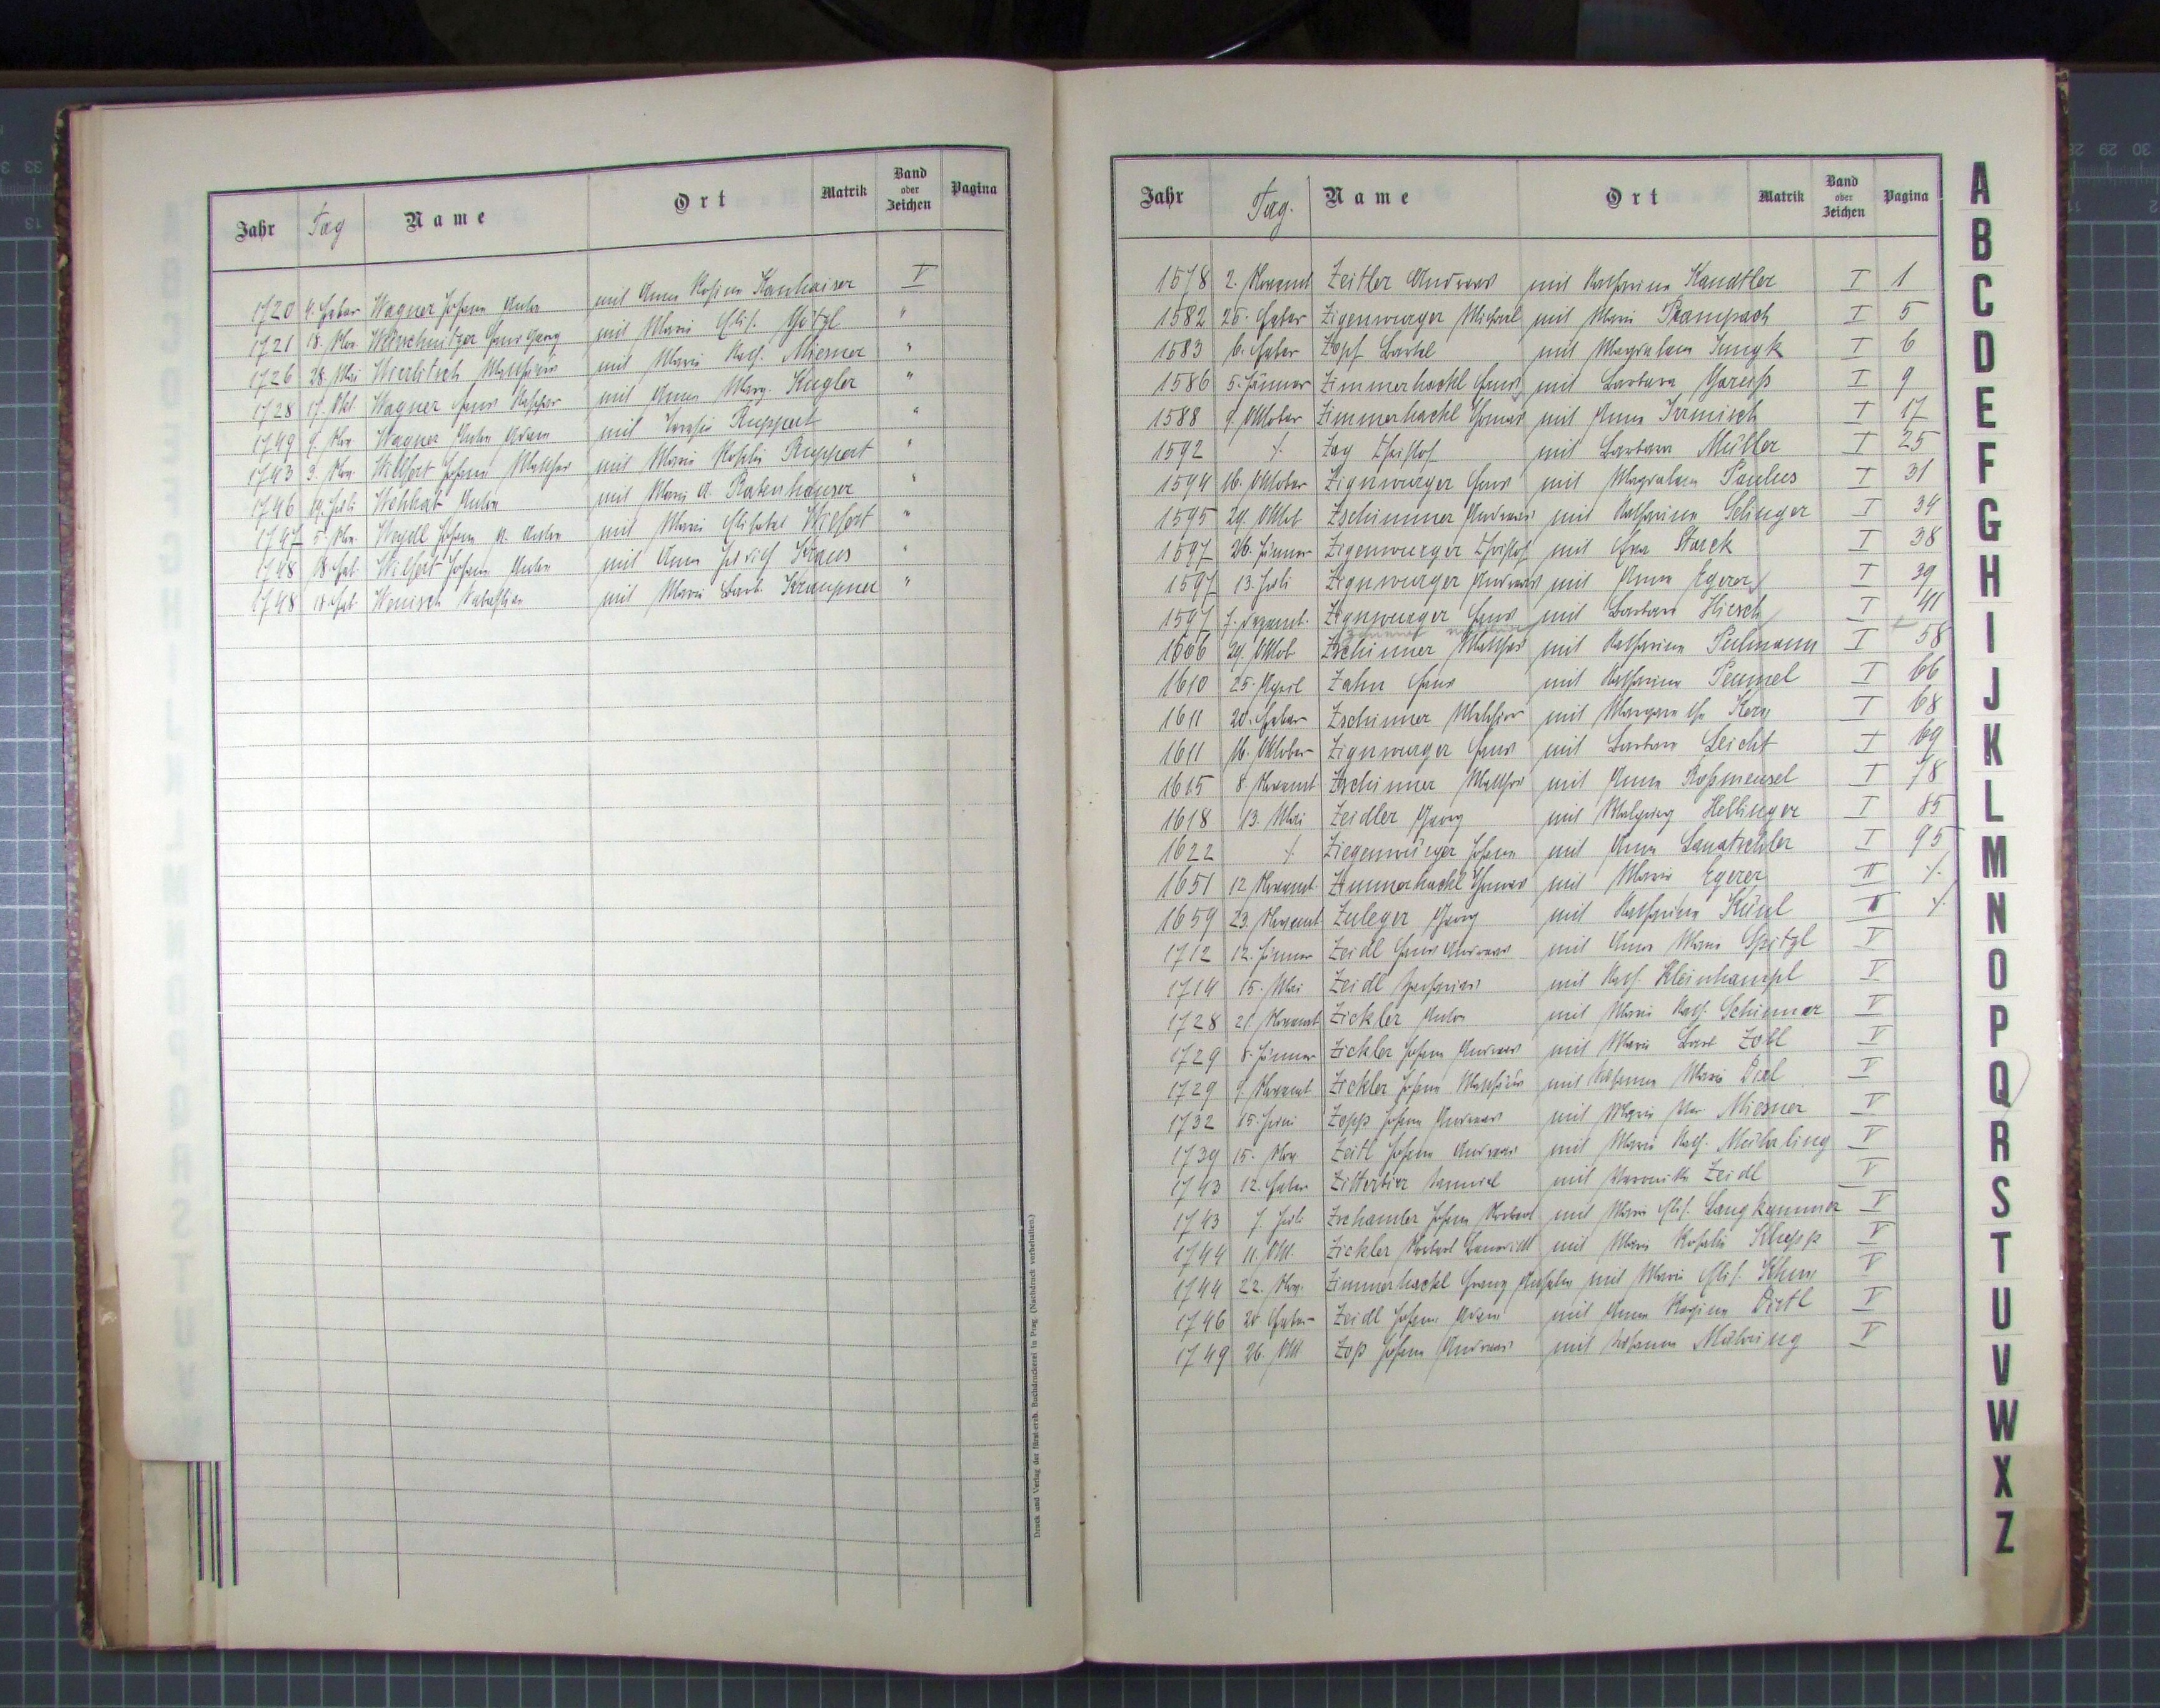 Jahr Tag Name Ort Matrik Band oder Zeichen Pagina
1720 4. Feber Wagner Johann Anton mit Anna Rosina Kanhaiser V
1721 18. Nov. Weinschnitzer Hans Georg mit Maria Elis. Götzl "
1726 28. Mai Wierlitsch Matthias mit Maria Kath. Miesner "
1728 17. Okt. Wagner Hans Kaspar mit Anna Marg. Kugler "
1749 9. Nov. Wagner Anton Adam mit Ruppert "
1743 3. Nov. Wilfert Johann Mathes mit Maria Rosalia Ruppert
1746 19. Juli Wohhab Anton mit Maria A. Rabenhauser "
1747 5. Nov. Weydl Johann A. Anton mit Maria Elisabet Wilfert "
1748 18. Feb. Wilfert Johann Anton mit Anna Kraus "
1748 18. Feb. Wenisch Sebastian mit Maria Barb. Kraupner "
Druck und Verlag der fürst-erzb. Buchdruckerei in Prag. (Nachdruck vorbehalten.)
Jahr Tag. Name Ort Matrik Band oder Zeichen Pagina
1578 2. Novemb Zeitler Andreas mit Katharina Kandtler I 1
1582 25. Feber Zigenwurger Michael mit Maria Prampach I 5
1583 6. Feber Zopf Bartl mit Magdalena Jungk I 6
1586 5. Jänner Zimmerhackl Hans mit Barbara Gareiß I 9
1588 9. Oktober Zimmerhackl Thomas mit Anna Irrmisch I 17
1592 ⁒ Zay Christof mit Barbara Müller I 25
1594 16. Oktober Zignwurger Hans mit Magdalena Paulus I 31
1595 29. Oktob Zschimmer Andreas mit Katharina Selinger I 34
1597 26. Jänner Zigenwurger Christof mit Eva Starck I 38
1597 13. Juli Zignwurger Andreas mit Anna Egerer I 39
1597 7. Dezemb. Zignwurger Hans mit Barbara Hirsch I 41
1606 29. Oktob Zschimmer Mathes mit Katharina Pulmann I 58
1610 25. April Zahn Hans mit Katharina Peumel I 66
1611 20. Feber Zschimmer Melchior mit Margarethe Kern I 68
1611 16. Oktober Zignwurger Hans mit Barbara Leicht I 69
1615 8. Novemb Zschimmer Mathes mit Anna Roßmeusel I 78
1618 13. Mai Zeidler Georg mit Walpurg Hellinger I 85
1622 ⁒ Ziegenwürger Johann mit Anna Lanatschler I 95
1651 12 Novemb. Zimmerhackl Thomas mit Maria Egerer II ⁒
1659 23. Novemb Zuleger Georg mit Katharina Künl II ⁒
1712 12. Jänner Zeidl Hans Andreas mit Anna Maria Spitzl V
1714 15. Mai Zeidl Zacharias mit Kath. Kleinhampl V
1728 21 Novemb Zickler Anton mit Maria Kath. Schimmer V
1729 8. Jänner Zickler Johann Andreas mit Maria Barb Zobl V
1729 9. Novemb Zickler Johann Mathias mit Johanna Maria Dixl V
1732 15. Juni Zopp Johann Andreas mit Maria Miesner V
1739 15. Nov Zeitl Johann Andreas mit Maria Kath. Mührling V
1743 12. Feber Zitterbier Samuel mit Veronika Zeidl V
1743 7. Juli Zschamler Johann Norbert mit Maria Elis. Langkammer V
1744 11. Okt. Zickler Norbert Benedikt mit Maria Rosalia Klupp V
1744 22. Nov. Zimmerhackl Franz Anselm mit Maria Elis. Khun V
1746 20 Feber Zeidl Johann Adam mit Anna Regina Dietl V
1749 26. Okt Zop Johann Andreas mit Johanna Mühring V
A
B
C
D
E
F
G
H
I
J
K
L
M
N
O
P
Q
R
S
T
U
V
W
X
Z